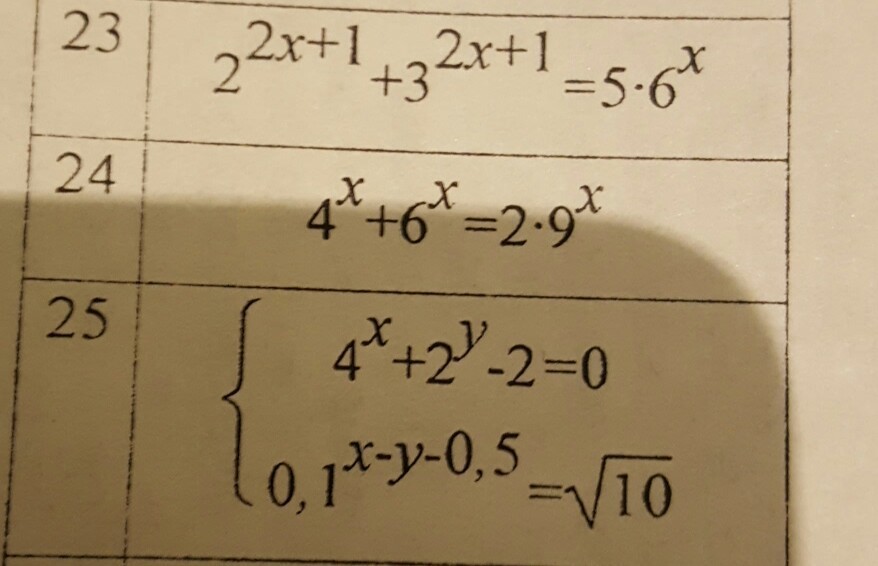 23 2^{2x+1}+3^{2x+1}=5·6^x
24 4^x+6^x=2·9^x
25 4^x+2^y-2=0
0,1^{x-y-0,5}=√10